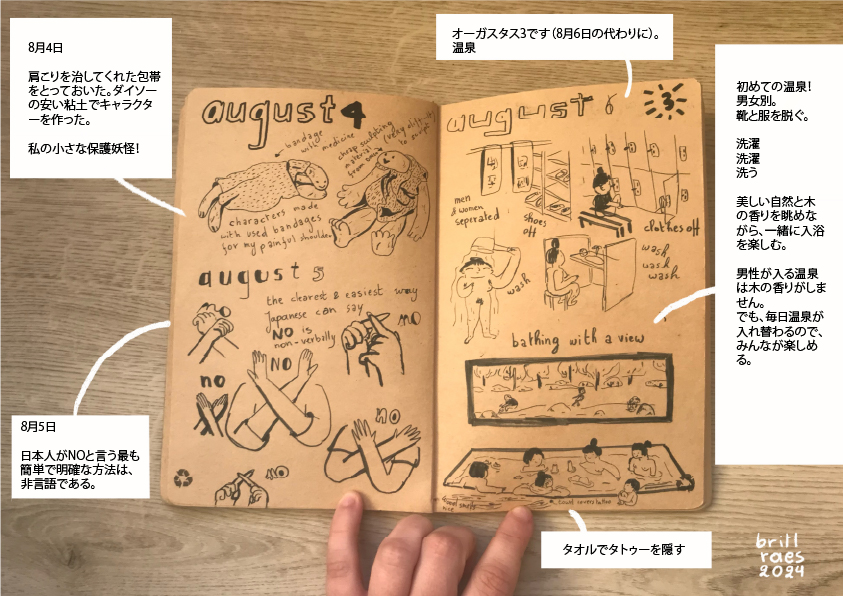 8月4日
肩こりを治してくれた包帯
をとっておいた。ダイソー
の安い粘土でキャラクタ
ーを作った。
私の小さな保護妖怪!
オーガスタス3です(8月6日の代わりに)。
温泉
初めての温泉!
男女別。
靴と服を脱ぐ。
洗濯
洗濯
洗う
美しい自然と木
の香りを眺めな
がら、一緒に入浴
を楽しむ。
男性が入る温泉
は木の香りがしま
せん。
でも、毎日温泉が
入れ替わるので、
みんなが楽しめ
る。
8月5日
日本人がNOと言う最も
簡単で明確な方法は、
非言語である。
タオルでタトゥーを隠す
august 4
bandage
with medicine
cheap sculpting
material
from
(very difficult
to sculpt
characters made
with used bandages
for my painful shoulder
august 5
the clearest & easiest way
Japanese can say
NO is
non-verbally
no
no
NO
no
no
no
august 6
3
men
& women
seperated
shoes
off
clothes off
wash
wash
wash
wash
bathing with a view
good smells
nice
a towel covers tattoo
brill
raes
2024